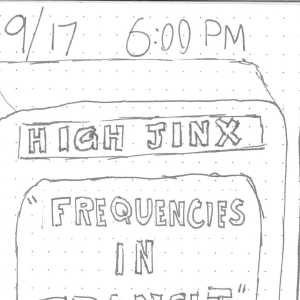 9/17 6:00 PM
HIGH JINX
"FREQUENCIES
IN
TRANSIT"